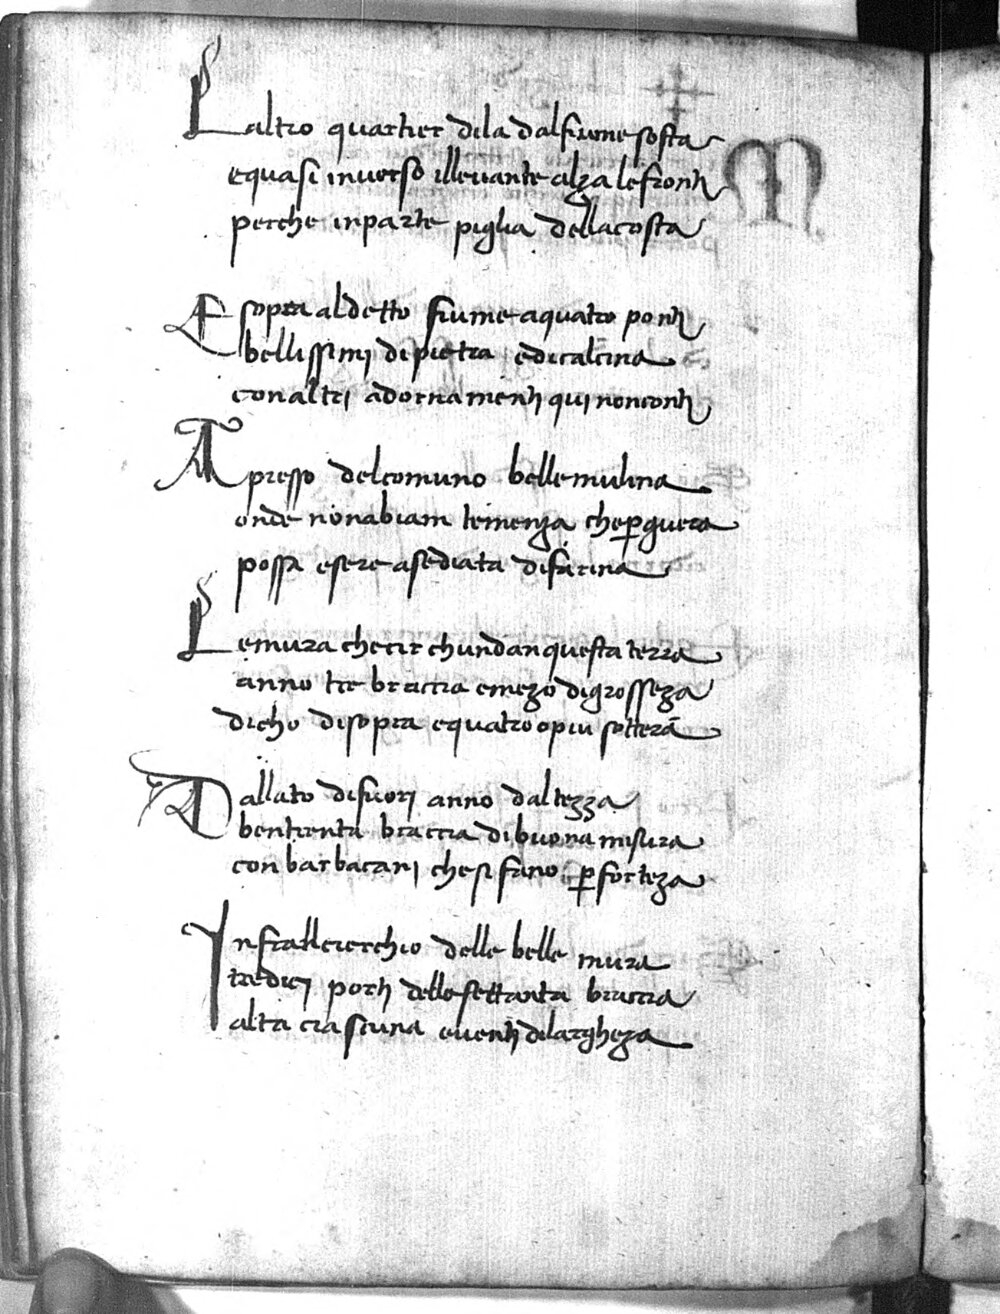 Laltro quartier dila dalfiume sosta
equasi inverso illevante alza le fronti
perche inparte piglia dellacosta
E sopra al detto fiume a quatro ponti
bellissimi di pietra e di calcina
con altri adornamenti qui non conti
Apresso del comuno belle mulina
onde non abiam temenza che per guera
possa esere asediata di farina
Le mura che circhundan questa terra
anno tre braccia e mezo di grosseza
dicho di sopra e quatro o piu sotterā
Dallato di fuori anno daltezza
ben trenta braccia di buona misura
con barbacani che si fano per forteza
Infrallcierchio delle belle mura
tredici porti dello settanta braccia
alta ciasciuna e venti dilargheza